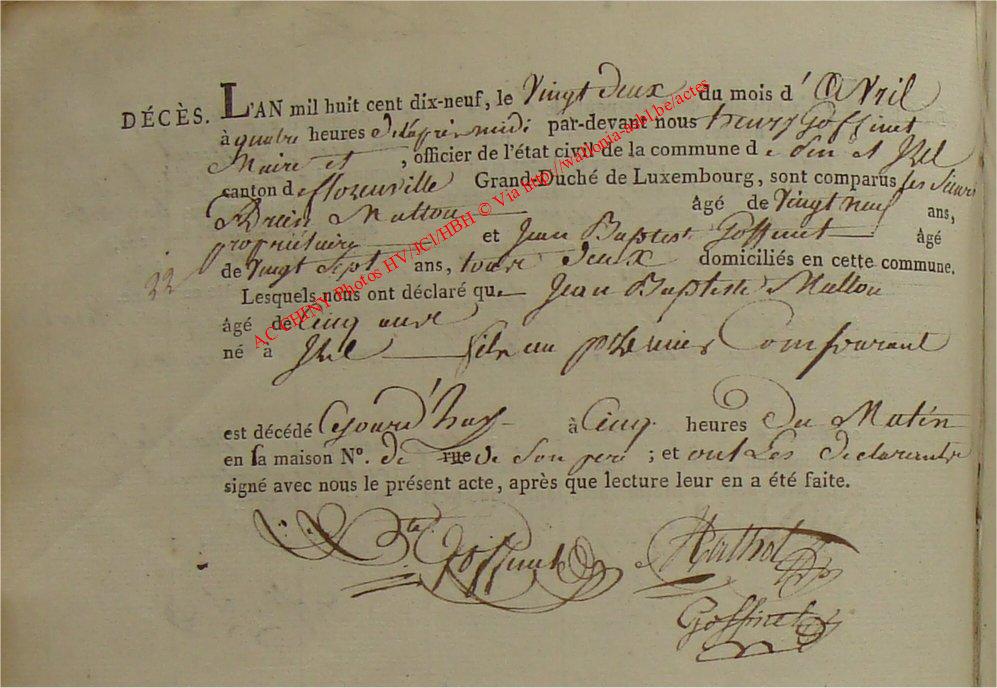 DÉCÈS. L'AN mil huit cent dix-neuf, le Vingt deux du mois d' Avril
à quatre heures de l'après midi par-devant nous henry Goffinet
Maire et , officier de l'état civil de la commune de pin et Izel
canton de florenville Grand-Duché de Luxembourg, sont comparus les Sieurs
Mathou âgé de Vingt neuf ans,
propriétaire et Jean Baptiste Goffinet âgé
22
de Vingt Sept ans, tous deux domiciliés en cette commune.
Lesquels nous ont déclaré que Jean Baptiste Mathou
âgé de Cinq ans
né à Izel fils au premier Comparant
est décédé Cejourd'huy à Cinq heures du Matin
en sa maison N°. de rue de son pere ; et ont Les declarants
signé avec nous le présent acte, après que lecture leur en a été faite.
Bte Goffinet Mathot
Goffinet
AC CHINY Photos HV/JCl/HBH © Via http://wallonia-asbl.be/actes